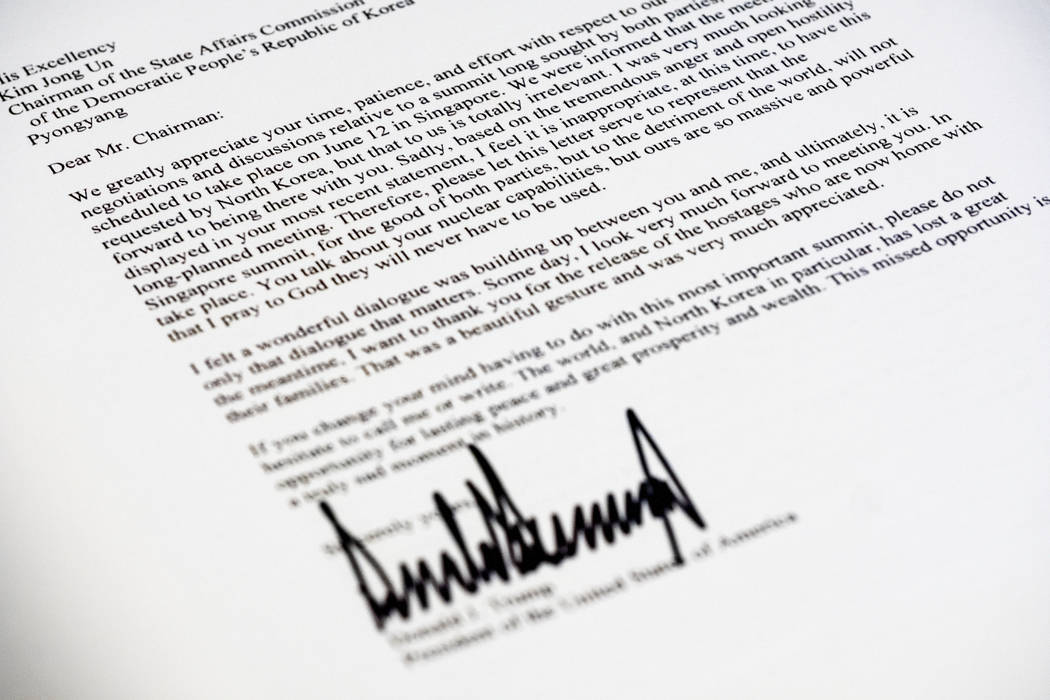 His Excellency
Kim Jong Un
Chairman of the State Affairs Commission
of the Democratic People's Republic of Korea
Pyongyang
Dear Mr. Chairman:
We greatly appreciate your time, patience, and effort with respect to our
negotiations and discussions relative to a summit long sought by both parties,
scheduled to take place on June 12 in Singapore. We were informed that the
requested by North Korea, but that to us is totally irrelevant. I was very much looking
forward to being there with you. Sadly, based on the tremendous anger and open hostility
displayed in your most recent statement, I feel it is inappropriate, at this time, to have this
long-planned meeting. Therefore, please let this letter serve to represent that the
Singapore summit, for the good of both parties, but to the detriment of the world, will not
take place. You talk about your nuclear capabilities, but ours are so massive and powerful
that I pray to God they will never have to be used.
I felt a wonderful dialogue was building up between you and me, and ultimately, it is
only that dialogue that matters. Some day, I look very much forward to meeting you. In
the meantime, I want to thank you for the release of the hostages who are now home with
their families. That was a beautiful gesture and was very much appreciated.
If you change your mind having to do with this most important summit, please do not
hesitate to call me or write. The world, and North Korea in particular, has lost a great
opportunity for lasting peace and great prosperity and wealth. This missed opportunity is
a truly sad moment in history.
Donald J. Trump
President of the United States of America